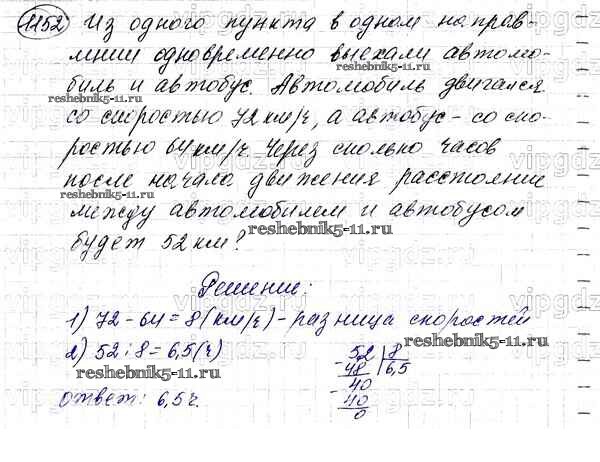 1152 Из одного пункта в одном направ-
лении одновременно выехали автомо-
биль и автобус. Автомобиль двигался
reshebnik5-11.ru reshebnik5-11.ru
со скоростью 72 км/ч, а автобус - со ско-
ростью 64 км/ч. Через сколько часов
после начала движения расстояние
reshebnik5-11.ru reshebnik5-11.ru
между автомобилем и автобусом
будет 52 км? reshebnik5-11.ru
Решение:
1) 72 - 64 = 8 (км/ч) - разница скоростей
reshebnik5-11.ru
2) 52 : 8 = 6,5 (ч)
reshebnik5-11.ru
ответ: 6,5 ч.
52 | 8
- 48 | 6,5
40
- 40
0
vipgdz